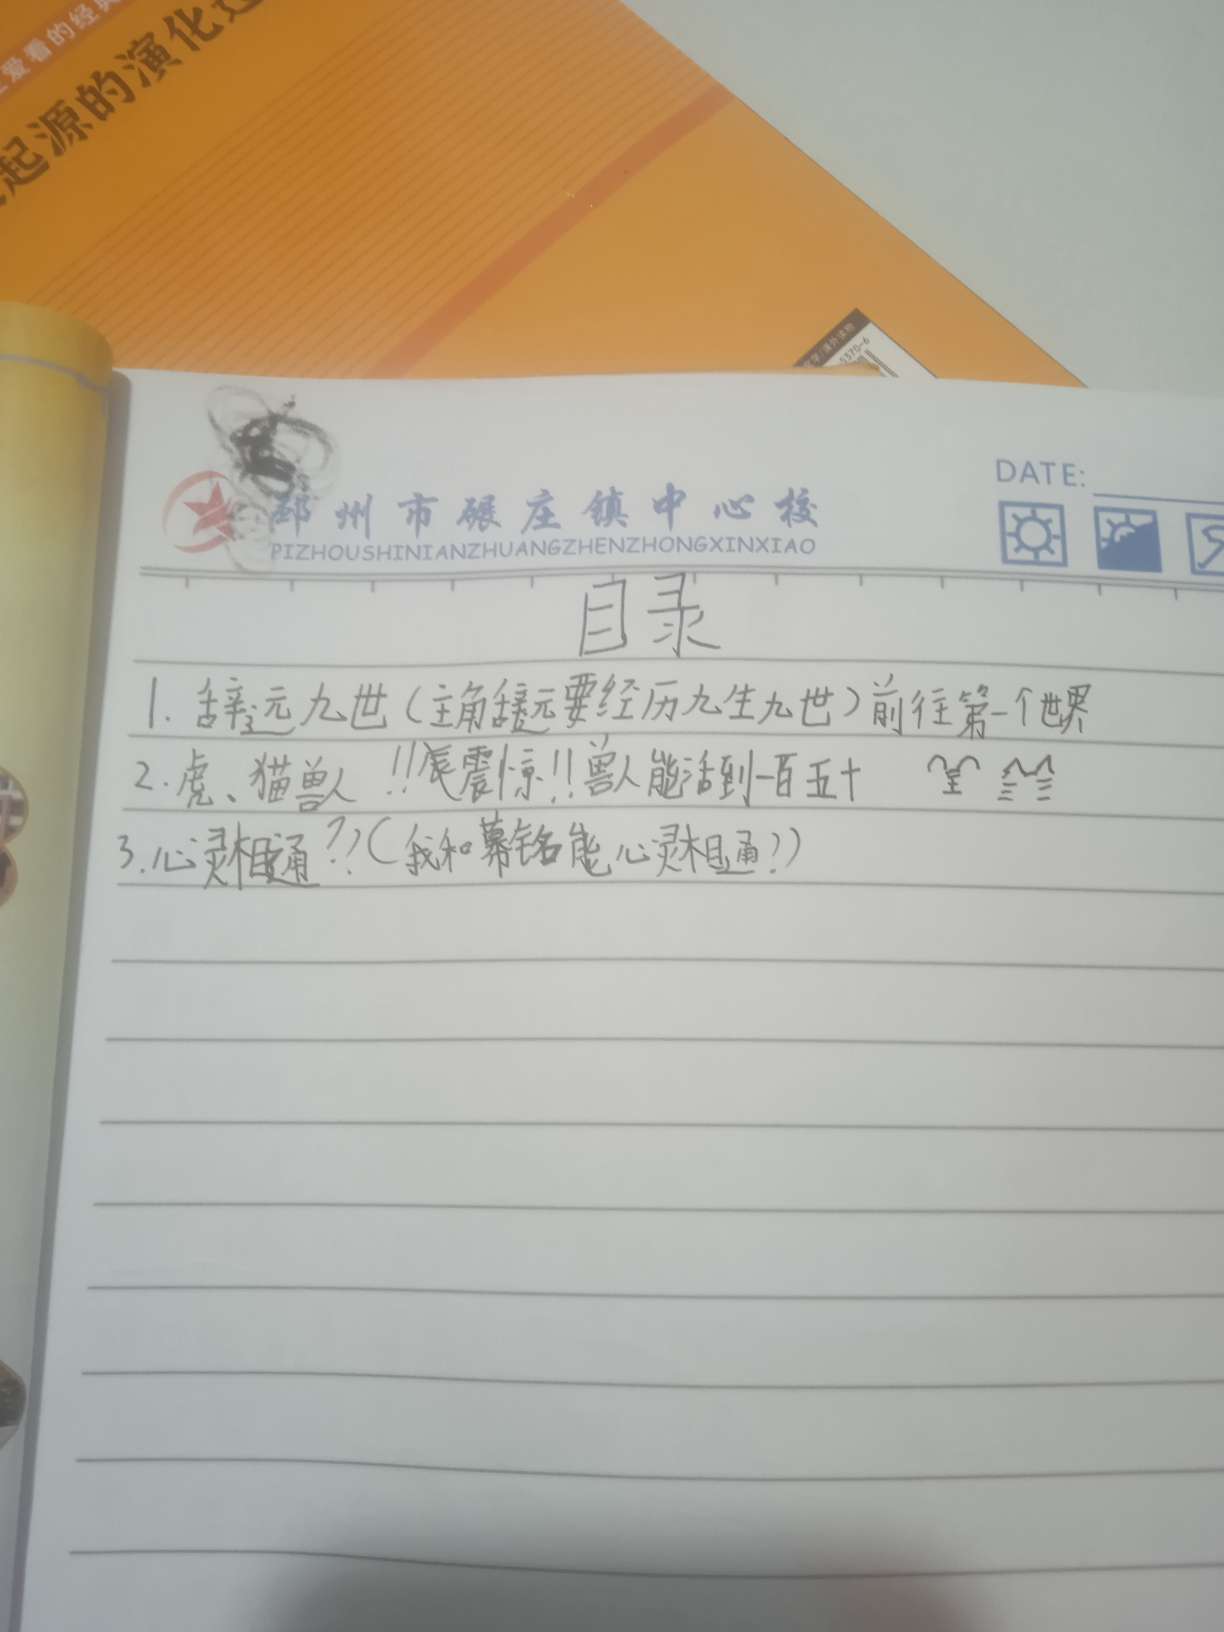 爱看的经典
起源的演化过
5370-6
邳州市碾庄镇中心校
PIZHOUSHINIANZHUANGZHENZHONGXINXIAO
DATE:
目录
1.辞远元九世(主角辞远元要经历九生九世)前往第一个世界
2.虎、猫兽人 !!辰震惊!!兽人能活到一百五十
3.心灵相通??(我和幕铭能心灵相通?)